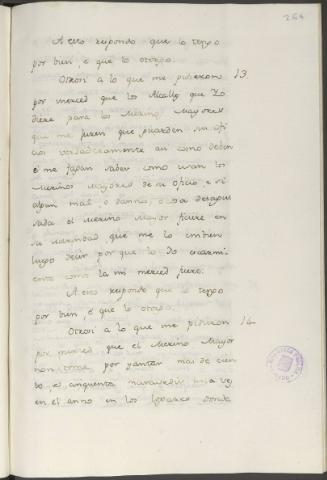 264
A esto respondo que lo tengo
por bien, e que lo otorgo.
Otrosi a lo que me pidieron 13.
por merced que los Alcalles que Yo
diere para los Merino Mayores
que me juren que guarden su ofi
cio verdaderamente asi como deben
e me fagan saber como usan los
Merinos Mayores de su oficio, e si
algun mal, o danno, o cosa desagui
sada el Merino Mayor ficiere en
su Merindad, que me lo embien
luego decir por que lo Yo escarmi
ente como la mi merced fuere.
A esto respondo que lo tengo
por bien, e que lo otorgo.
Otrosi a lo que me pidieron 14.
por merced que el Merino Mayor
non tome por yantar mas de cien
to, e cinquenta maravedis una vez
en el anno en los logares donde